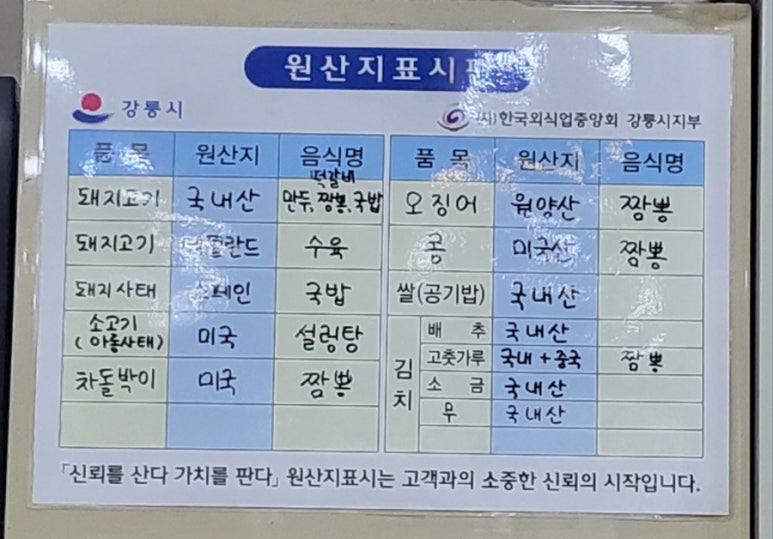 원산지표시판
강릉시
(사)한국외식업중앙회 강릉시지부
품 목 원산지 음식명
돼지고기 국내산 떡갈비
만두, 짬뽕, 국밥
돼지고기 네덜란드 수육
돼지사태 스페인 국밥
소고기
(아롱사태) 미국 설렁탕
차돌박이 미국 짬뽕
품 목 원산지 음식명
오징어 원양산 짬뽕
콩 미국산 짬뽕
쌀(공기밥) 국내산
김치
배 추 국내산
고춧가루 국내+중국 짬뽕
소 금 국내산
무 국내산
「신뢰를 산다 가치를 판다」 원산지표시는 고객과의 소중한 신뢰의 시작입니다.